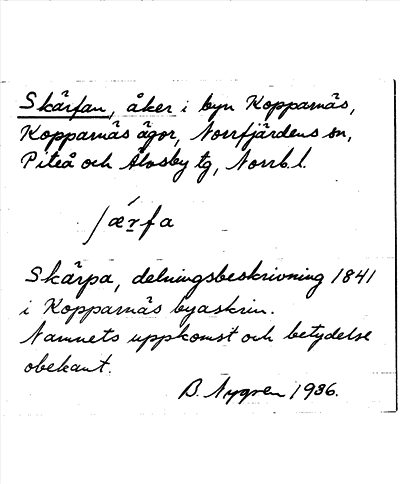 Skärfan, åker i byn Kopparnäs,
Kopparnäs ägor, Norrfjärdens sn,
Piteå och Älvsby tg, Norrb. l.
ʃæ̀r̲fa
Skärpa, delningsbeskrivning 1841
i Kopparnäs byaskrin.
Namnets uppkomst och betydelse
obekant.
B. Nygren 1936.